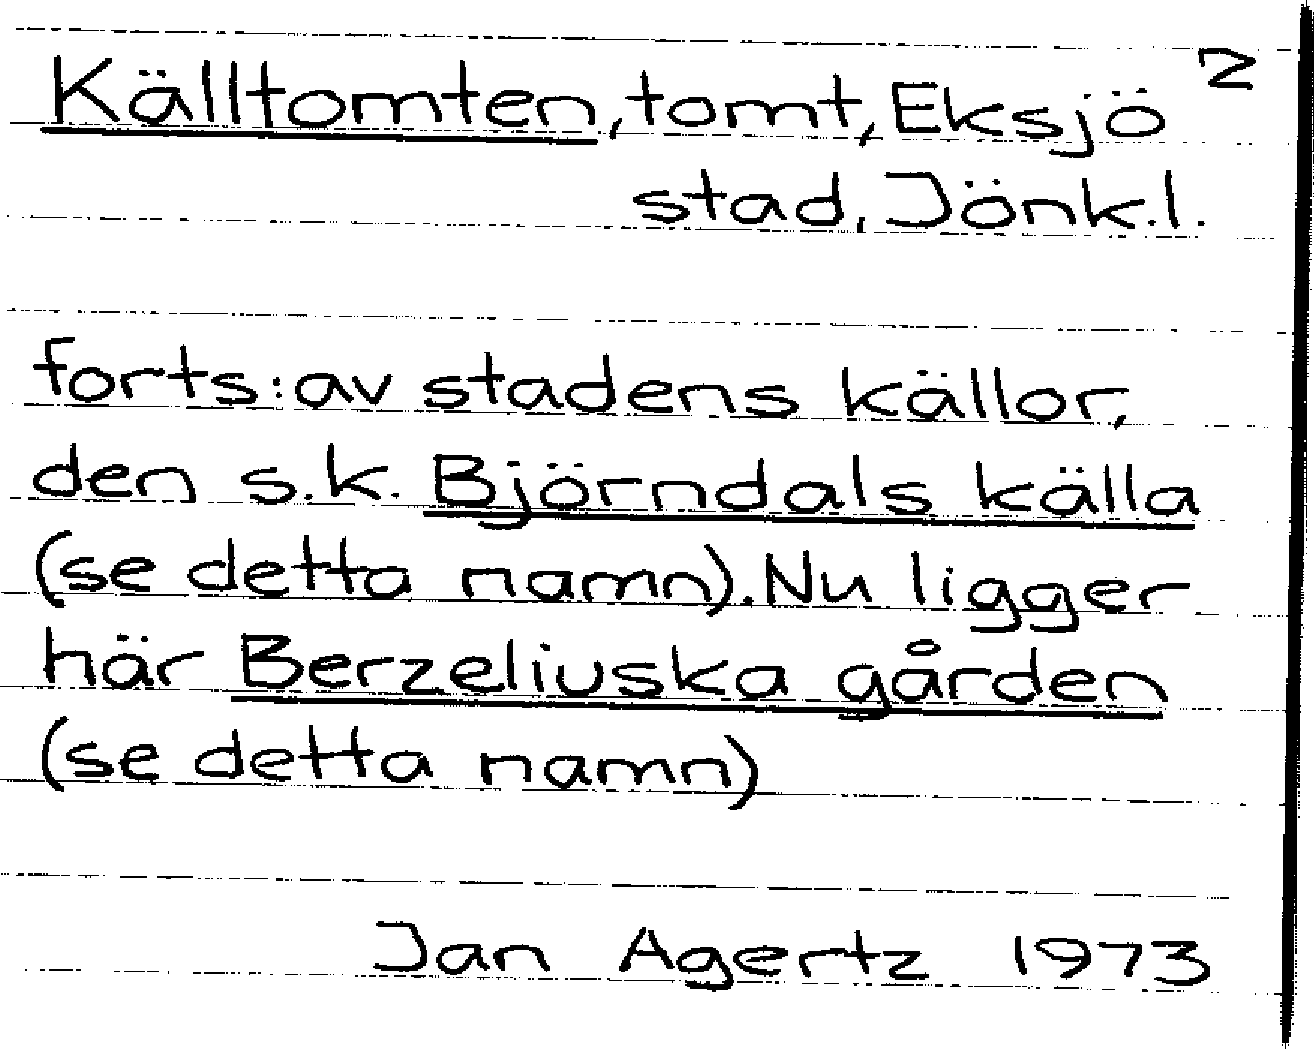 Källtomten, tomt, Eksjö 2
stad, Jönk.l.
forts: av stadens källor,
den s.k. Björndals källa
(se detta namn). Nu ligger
här Berzeliuska gården
(se detta namn)
Jan Agertz 1973